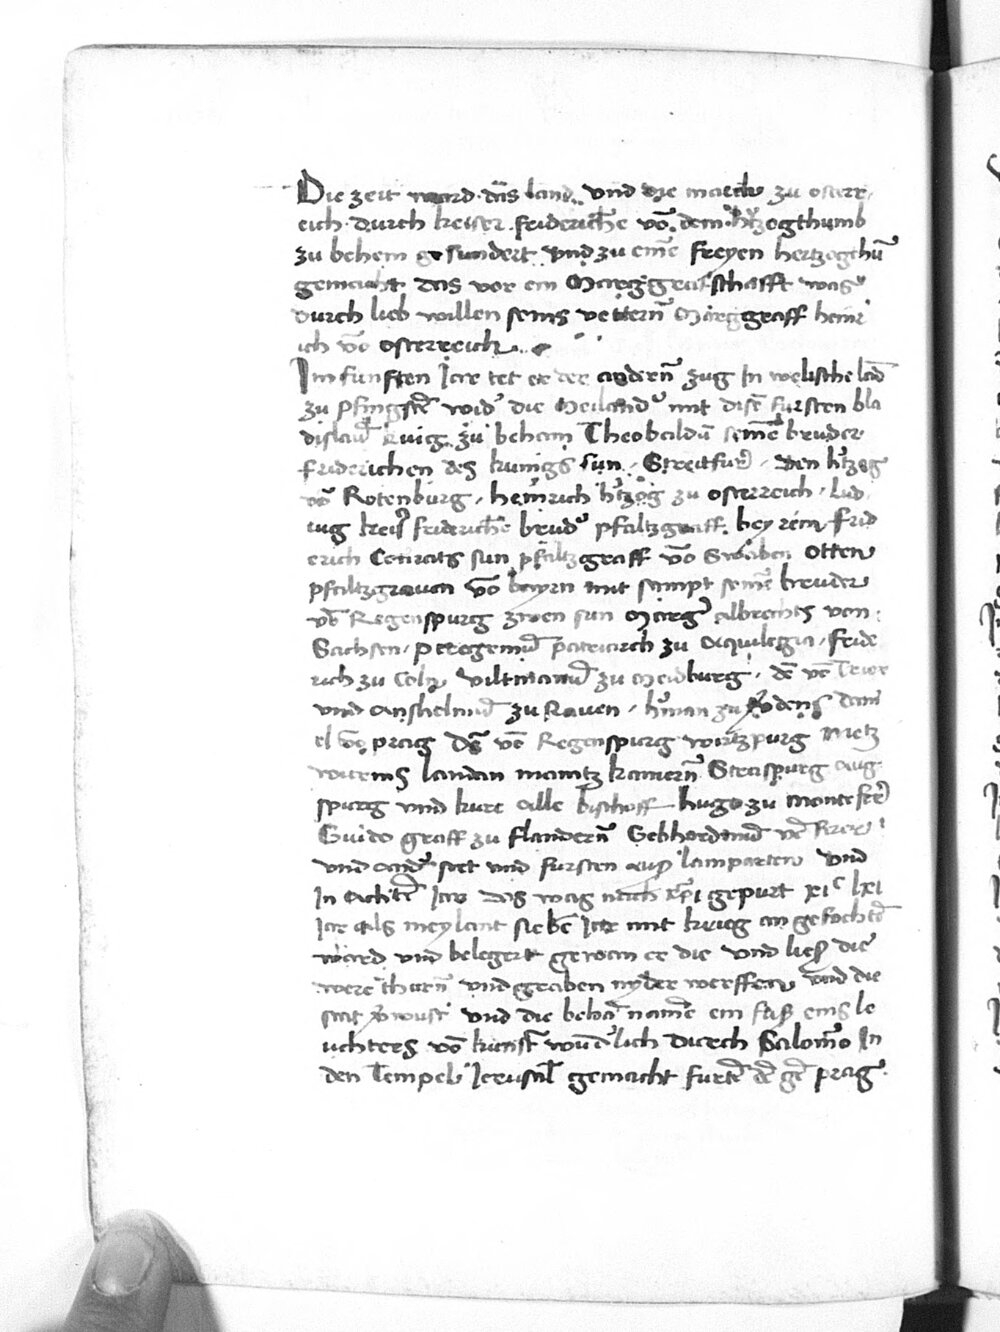 Die zeit ward das land vnd die march zu osterr
eich durch keiser friderichē vō dem h̄tzogthumb
zu behem gesundert vnd zu einē freyen hertzogthū
gemacht das vor ein Marggrafschafft was
durch lieb willen seins vettern̄ Marggraff heinr
ich vō osterreich
Im funften Jar tet er der andern̄ zug In welische lād
zu pfingstē wid' die Meiland' mit disē fursten bla
dislaū kunig zu behem Theobaldū seinē bruder
friderichen des kunigs sun den h̄tzog
vō Rotenburg heinrich h̄tzog zu osterreich lud
wig keis' friderichē brud' pfaltzgraff bey rein frid
erich Conrats sun pfaltzgraff vō Swaben Otten
pfaltzgrauen vō bayrn mit sampt seinē bruder
vō Regenspurg zwen sun Marg' albrechts von
Sachsen peregrinū patriarch zu aquilegia fride
rich zu Coln viltmanū zu Meidburg dē vō Trier
vnd anshelmū zu Rauen h'man zu dani
el vō prag vō Regenspurg wirtzpurg Metz
wurms landan maintz kamern̄ Straspurg aug
spurg vnd kure alle bischoff hugo zu monteferē
Guido graff zu flandern̄ Gebhardū vō
vnd and' stet vnd fursten auß lamparten vnd
In achtē Jar das was nach xp̄i gepurt xi^c lxi
Jar als meylant siebē Jar mit krieg an gefochtē
ward vnd belegert gewan er die vnd ließ die
were thurn̄ vnd graben nyder werffen vnd die
stat v'wust vnd die behā namē ein fuß eins le
uchters vō kunst wūd'lich durch Salomō In
den Tempel Jerusal̄ gemacht furtē dē gē prag